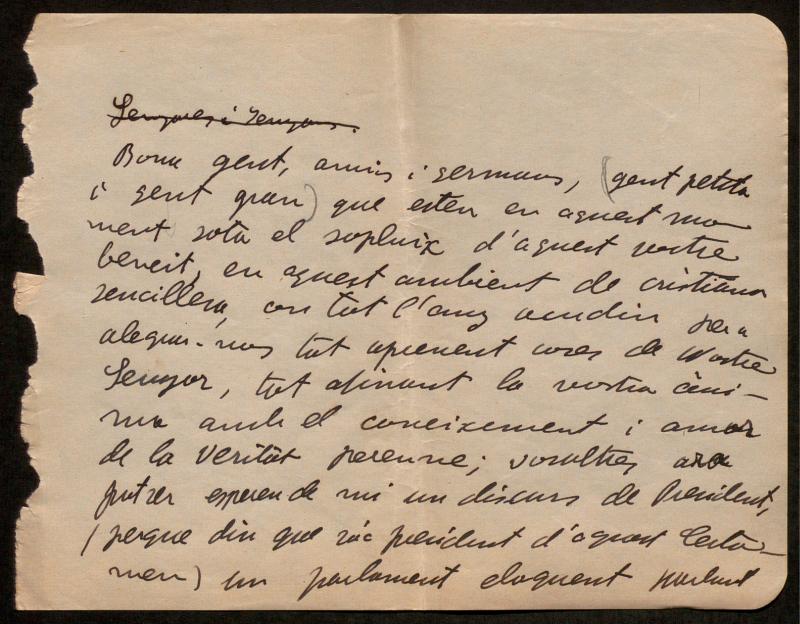 Senyores i Senyors.
Bona gent, amics i germans, (gent petita
i gent gran) que esteu en aquest mo-
ment sota el sopluix d'aquest vostre
beneit, en aquest ambient de cristiana
sencillesa, on tot l'any veniu per a
alegrar-nos tot aprenent coses de Nostre
Senyor, tot afinant la vostra àni-
ma amb el coneixement i amor
de la Veritat perenne; vosaltres ara
potser espereu de mi un discurs de President,
(perque diu que sóc president d'aquest Certa-
men) un parlament eloquent